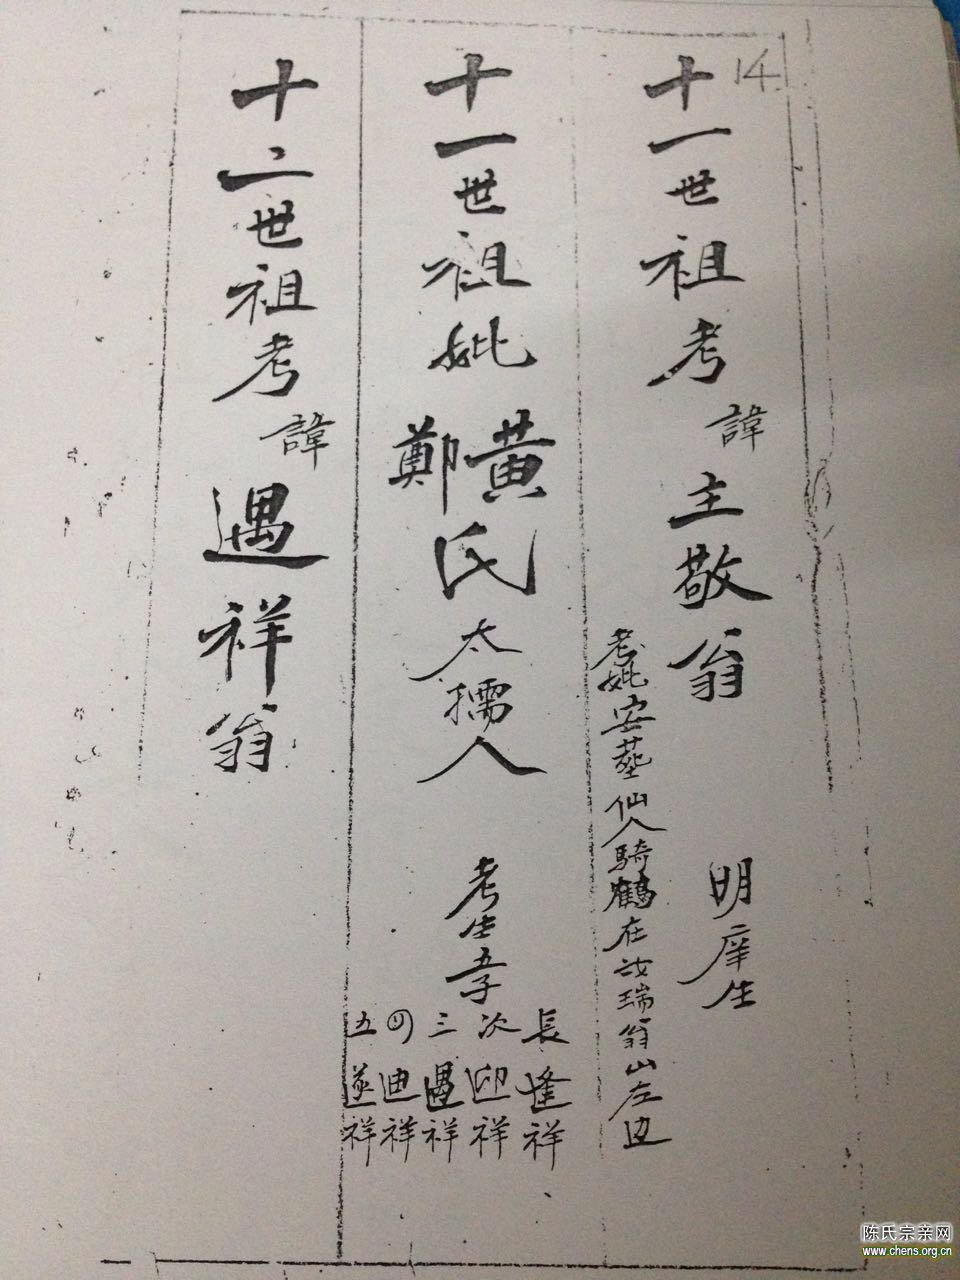 14
十一世祖考諱主敬翁 明庠生
考妣安葬仙人騎鶴在汝瑞翁山左边
十一世祖妣黄鄭氏太孺人 考生五子
長逢祥
次迎祥
三遇祥
四迪祥
五遂祥
十二世祖考諱遇祥翁
陈氏宗亲网
www.chens.org.cn